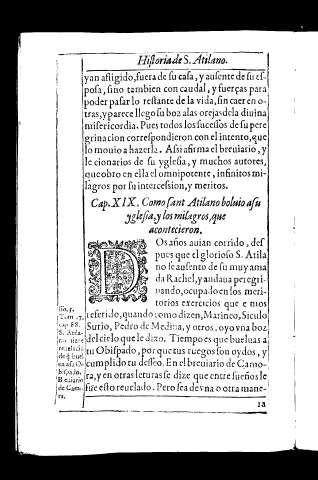 Historia de S. Atilano.
y an afligido, fuera de su casa, y ausente de su es-
posa, sino tambien con caudal, y fuerças para
poder pasar lo restante de la vida, sin caer en o-
tras, y parece llego su boz alas orejas dela diuina
misericordia. Pues todos los sucessos de su pere
grinacion correspondieron con el intento, que
lo mouio a hazerla. Assi afirma el breuiario, y
lecionarios de su yglesia, y muchos autores,
que obro en ella el omnipotente, infinitos mi-
lagros por su intercession, y meritos.
Cap. XIX. Como sant Atilano boluio a su
yglesia, y los milagros, que
acontecieron.
DOs años auian corrido, des
pues que el glorioso S. Atila
no se ausento de su muy ama
da Rachel, y andaua peregri-
nando, ocupalo en los meri-
torios exercicios que emos
referido, quando como dizen, Marineo, Siculo
Surio, Pedro de Medina, y otros, oyo vna boz
del cielo que le dixo. Tiempo es que bueluas a
tu Obispado, por que tus ruegos son oydos, y
cumplido tu desseo. En el breuiario de Camo-
ra, y en otras leturas se dize que entre sueños le
fue esto reuelado. Pero sea de vna o otra mane-
ra
Tom. 7.
cap 88.
S. Atila-
no tiene
reuelació
de q̃ buel
ua a su O-
bispado.
Breuiario
de Camo-
ra.